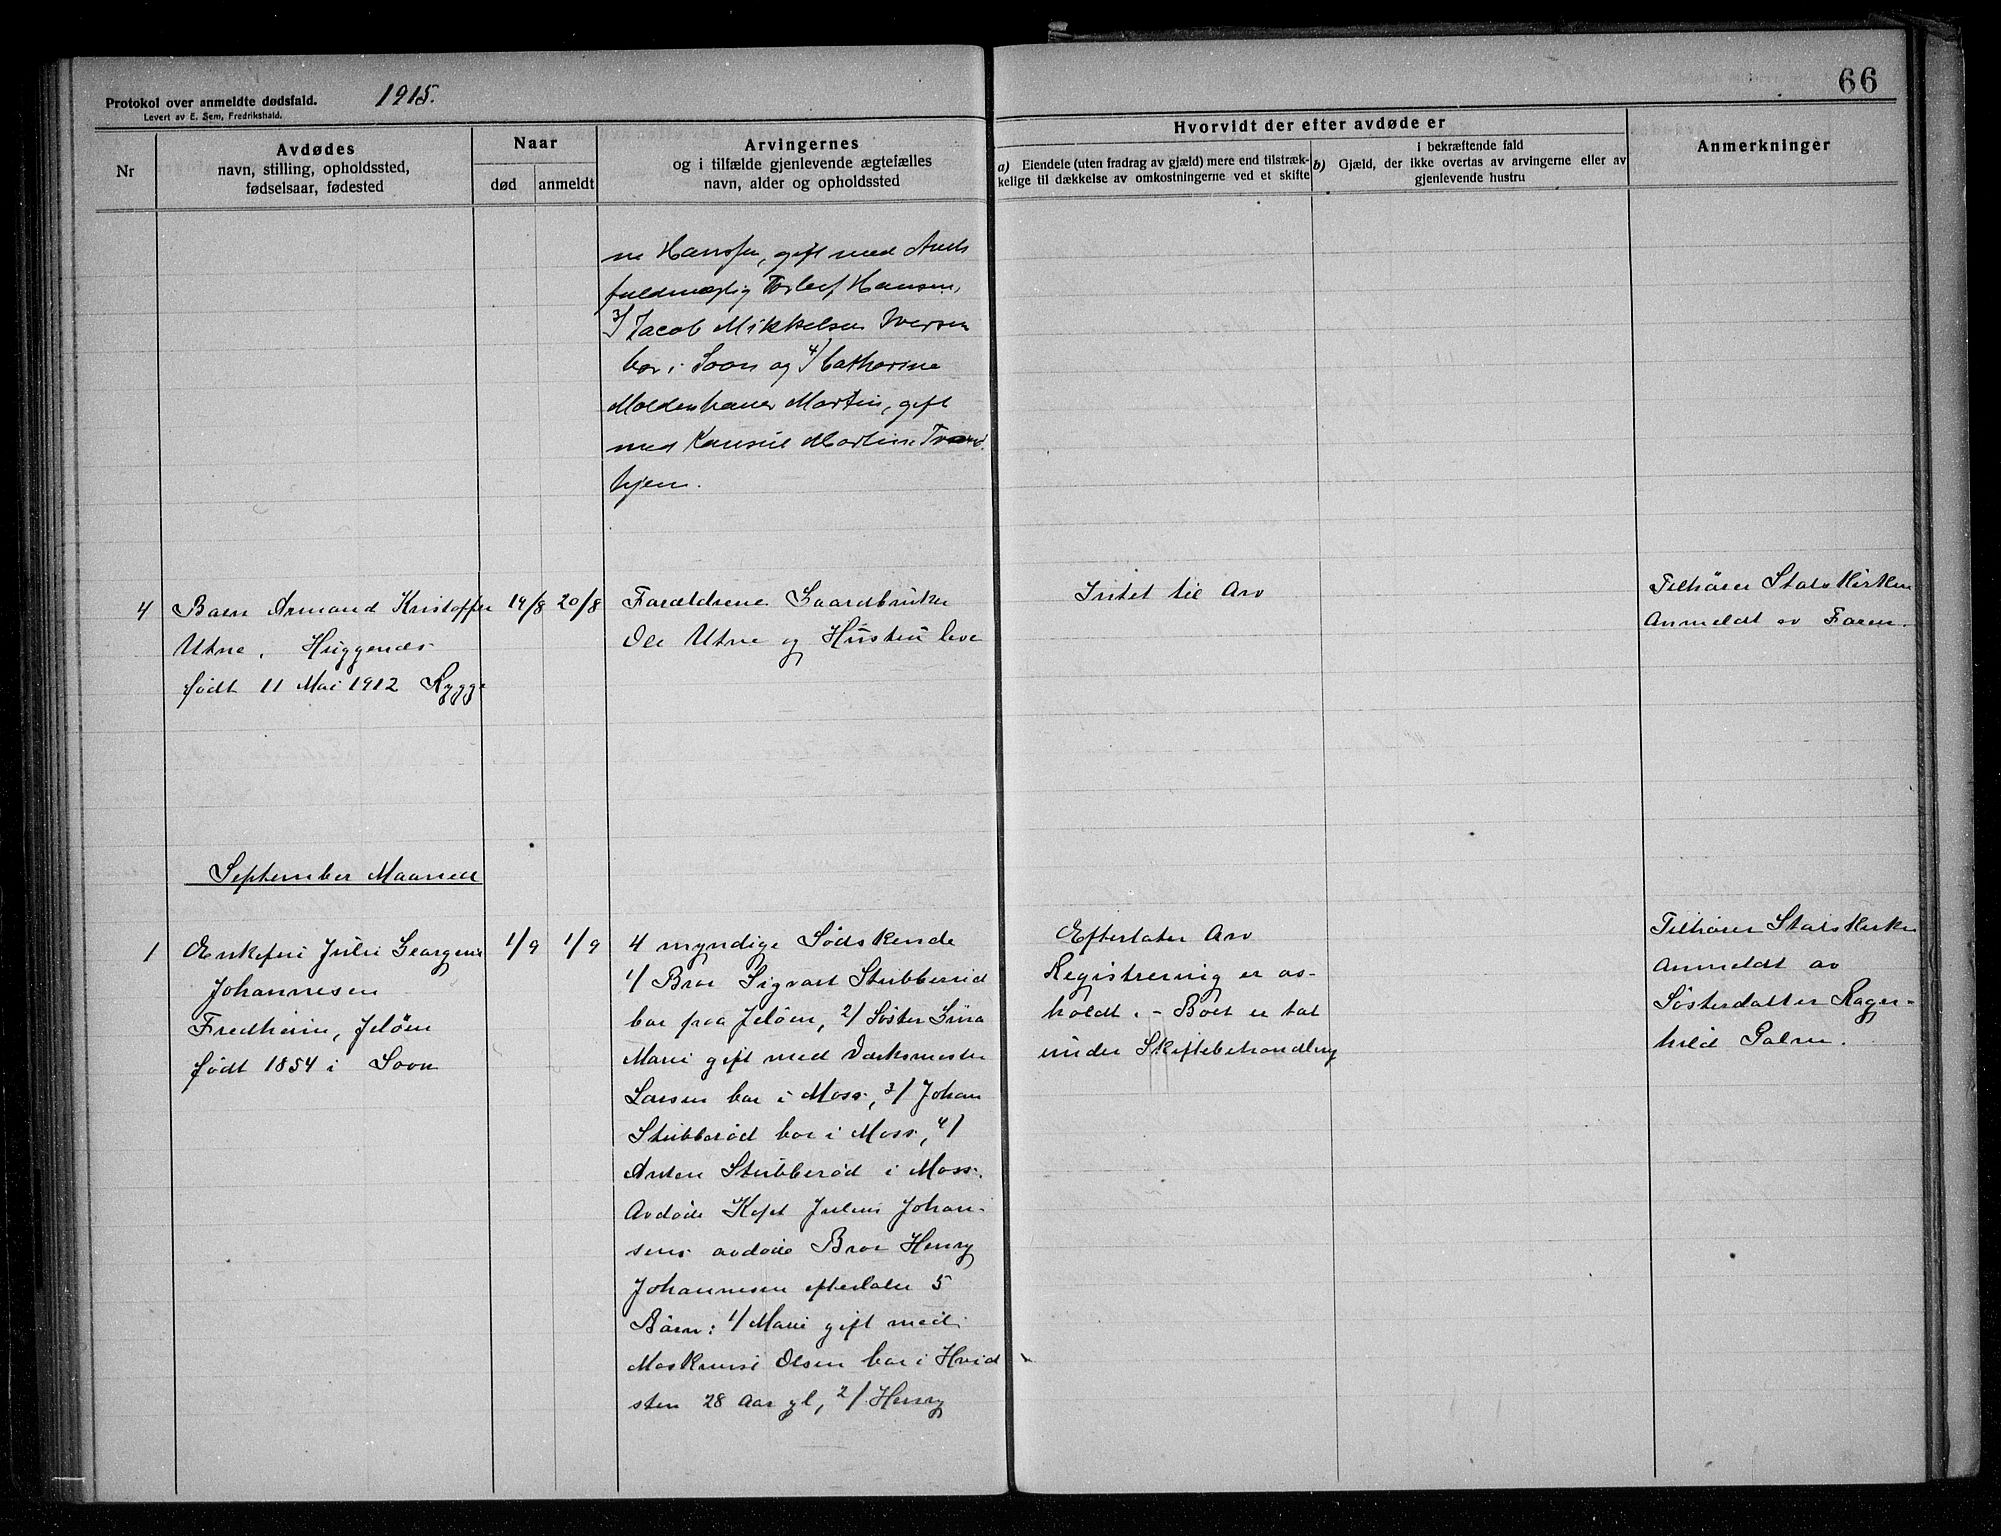 66
Protokol over anmeldte dødsfald. 1915.
Levert av E. Sem, Fredrikshald.
Nr
Avdødes
navn, stilling, opholdssted,
fødselsaar, fødested
Naar
død anmeldt
Arvingernes
og i tilfælde gjenlevende ægtefælles
navn, alder og opholdssted
Hvorvidt der efter avdøde er
a) Eiendele (uten fradrag av gjæld) mere end tilstræk-
kelige til dækkelse av omkostningerne ved et skifte
I bekræftende fald
b) Gjæld, der ikke overtas av arvingerne eller av
gjenlevende hustru
Anmerkninger
ne Hansen, gift med
fuldmægtig Torleif Hansen,
3/ Jacob Mikkelsen Iversen
bor i Soon og 4/ Cathorine
Moldenhauer Martin, gift
med Konsul Martin, Trond-
hjem.
4 Barn Armand Kristoffer
Utne, Huggenes
født 11 Mai 1912 Rygge
14/8 20/8
Forældrene Gaardbruker
Ole Utne og Hustru leve
Intet til Arv
Tilhører Statskirken
Anmeldt av Faren.
September Maaned
1 Enkefru Julie Georgine
Johannesen
Fredheim, Jeløen
født 1854 i Soon
1/9 1/9
4 myndige Sødskende
1/ Bror Sigvart Stubberød
bor paa Jeløen, 2/ Søster
Marie gift med Værksmester
Larsen bor i Moss, 3/ Johan
Stubberød bor i Moss, 4/
Anton Stubberød i Moss.
Avdøde Kapt Julius Johan-
sens avdøde Bror Henry
Johannesen efterlater 5
Børn: 1/ Marie gift med
Maskinist Olsen bor i Hvid
sten 28 Aar gl, 2/ Henry
Efterlater Arv
Registrering er av-
holdt. - Boet er tat
under Skiftebehandling
Tilhører Statskirken
Anmeldt av
Søsterdatter Ragn-
hild Palm.